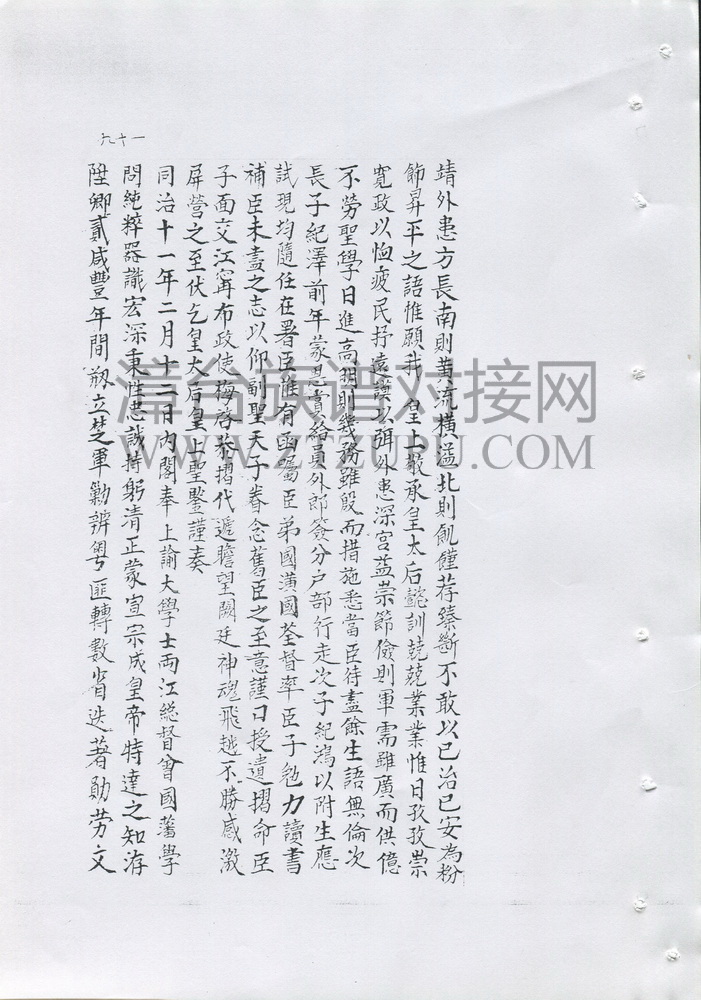 靖外患方長南則黃流橫溢北則飢饉荐臻斷不敢以已治已安為粉
飾昇平之語惟願我 皇上敬承皇太后懿訓兢兢業業惟日孜孜崇
寬政以恤疲民抒遠謨以弭外患深宮益崇節儉則軍需雖廣而供億
不勞聖學日進高明則幾務雖殷而措施悉當臣待盡餘生語無倫次
長子紀澤前年蒙恩賞給員外郎簽分户部行走次子紀鴻以附生應
試現均隨任在署臣惟有函囑臣弟國潢國荃督率臣子勉力讀書
補臣未盡之志以仰副聖天子眷念舊臣之至意謹口授遺摺命臣
子面交江寗布政使梅啓恭摺代遞瞻望闕廷神魂飛越不勝感激
屏營之至伏乞皇太后皇上聖鑒謹奏
同治十一年二月十二日內閣奉 上諭大學士両江総督曾國藩學
問純粹器識宏深秉性忠誠持躬清正蒙宣宗成皇帝特達之知洊
陞卿貳咸豐年間剏立楚軍勦辨粤匪轉數省迭著勛勞文
九十一
清谷族谱对接网
WWW.ZTZUPU.COM